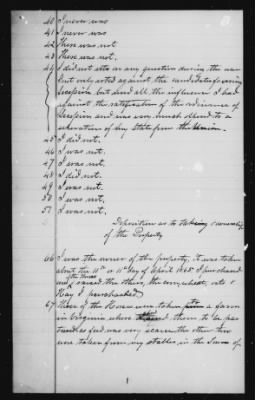 40 I never was
41 I never was
42 There was not
43 There was not.
44 I did not vote on any question during the war
but only voted against the candidates favoring
Secession but used all the influence I had
against the ratification of the ordinance of
Secession and was very much opposed to a
separation of any State from the Union.
45 I did not.
46 I was not.
47 I was not.
48 I did not.
49 I was not.
50 I was not.
51 I was not.
Deposition as to taking & ownership
of the Property
66 I was the owner of the property, it was taken
about the 10th or 11th day of April 1865. I purchased
of the Horses
and raised the others, the corn, wheat, oats &
Hay I purchased.
67 Three of the Horses were taken from a farm
in Virginia where them to be pas
tured as feed was very scarce the other two
was taken from my stables in the Town of
1